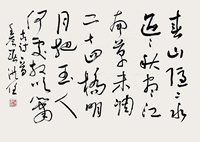 青山隱々水
迢々秋盡江
南草未凋
二十四橋明
月夜玉人
何處教吹簫